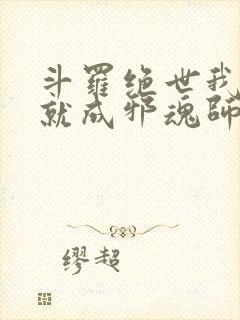 斗羅绝世我
就成邪魂師
缪超